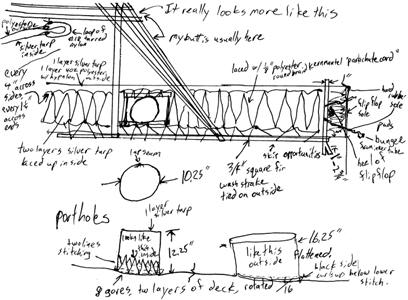 It really looks more like this
my butt is usually here
loop of
tarred
nylon
silver tarp
inside
1 layer silver tarp
every
4" across
sides
every 1½"
across
ends
laced w/ ⅛" polyester kernmantel "parachute cord"
round braid
slipflop
sole
pads
bungee
inner tube
heel of
slipflop
two layers silver tarp
laced up inside
lap seam
10.25"
3/4" square fir
wash strake
tied on outside
skis opportunities
portholes
1 layer
silver tarp
two lines
stitching
looks like
this
inside
12.25"
like this
outside
16.25"
flattened
black side
curls up below lower
stitch.
16
8 gores, two layers of deck, rotated